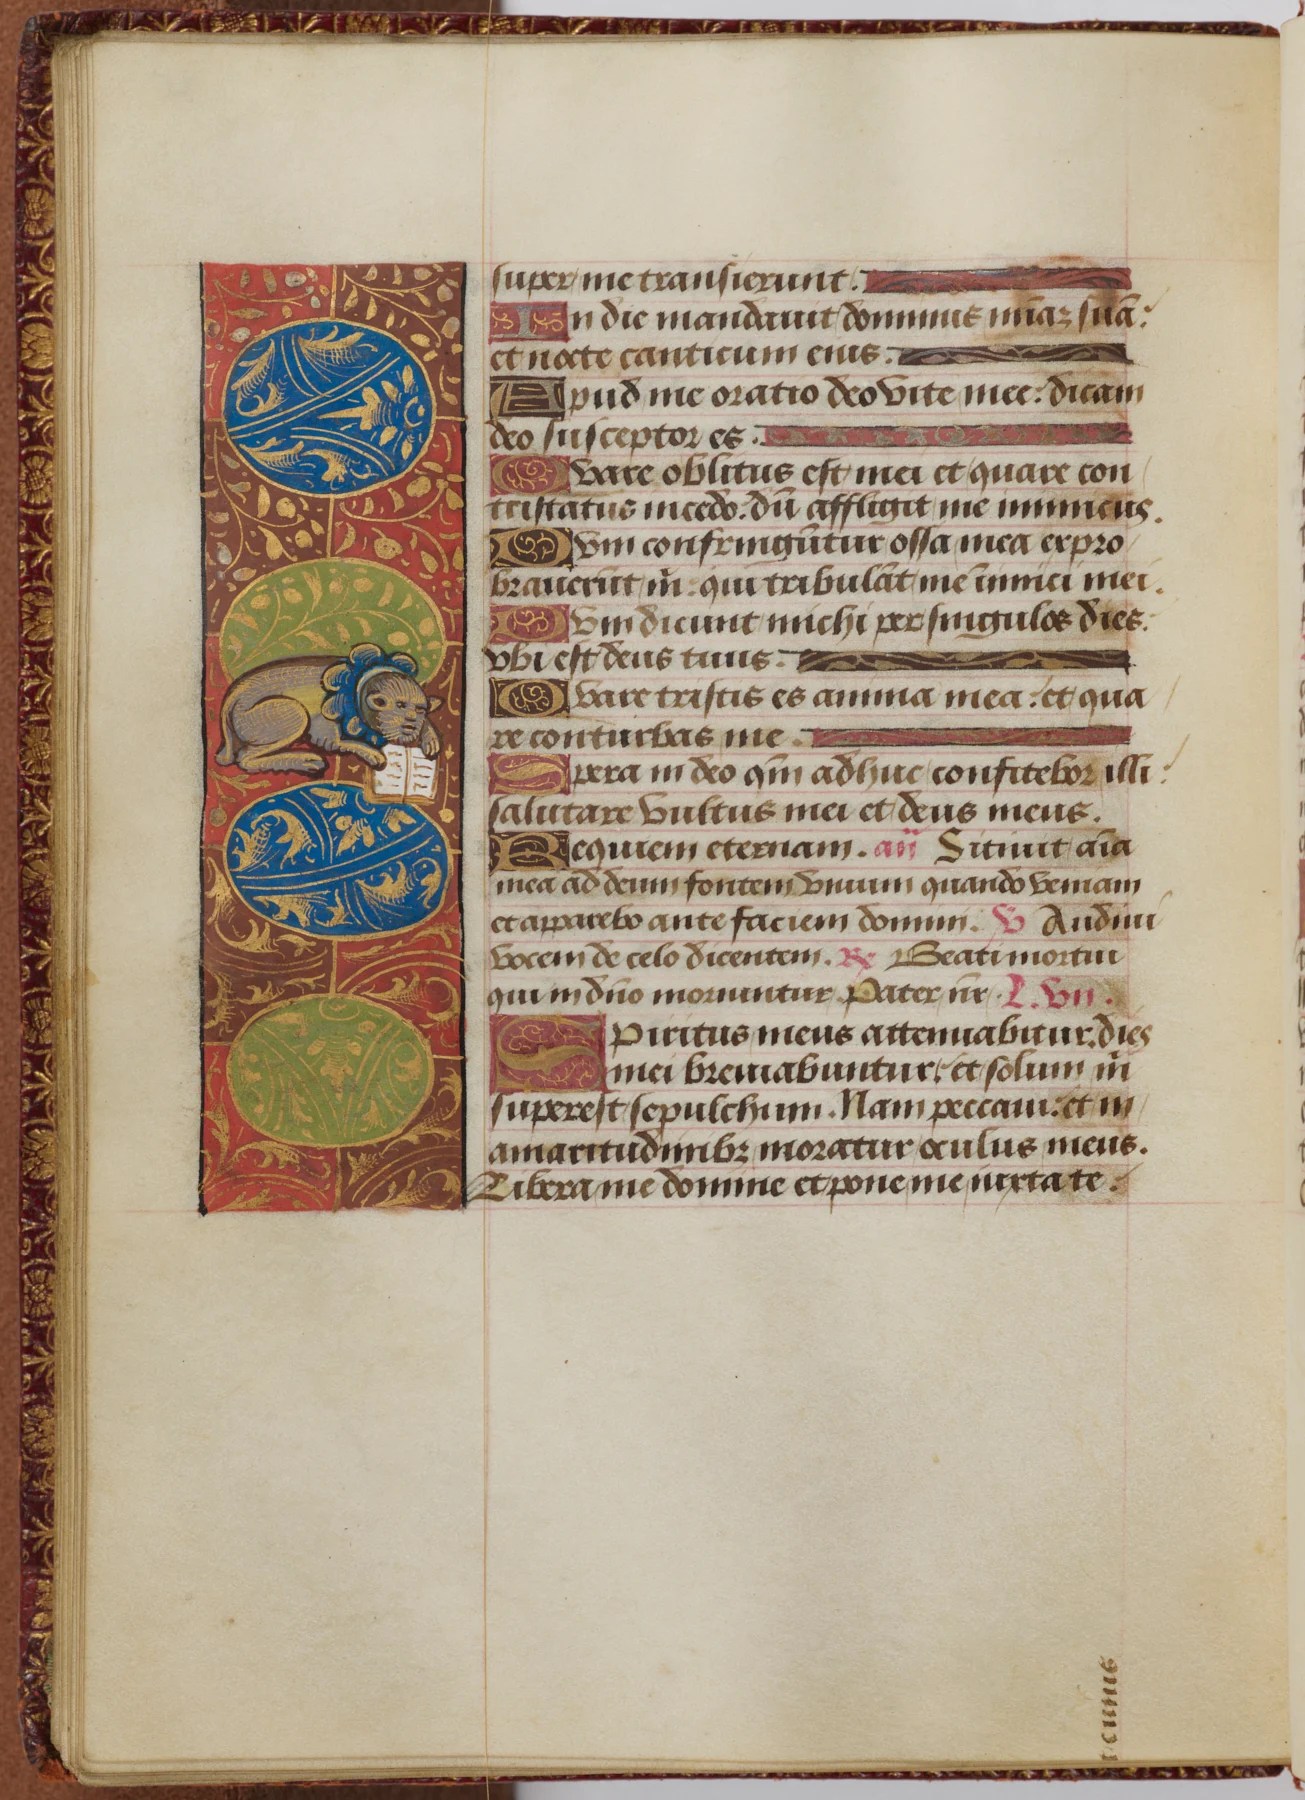 super me transierunt.
In die mandauit dominus mīaz suā:
et nocte canticum eius.
Apud me oratio deo vite mee: dicam
deo susceptor es.
Quare oblitus est mei et quare con
tristatus incedo: dū affligit me inimicus.
Dum confringūtur ossa mea expro
brauerūt m̄: qui tribulāt me īimici mei.
Dum dicunt michi per singulos dies:
vbi est deus tuus.
Quare tristis es anima mea: et qua
re conturbas me.
Spera in deo qm̄ adhuc confitebor illi:
salutare vultus mei et deus meus.
Requiem eternam. an̄ Sitiuit aīa
mea ad deum fontem viuum quando veniam
et apparebo ante faciem domini. V Audiui
vocem de celo dicentem. R Beati mortui
qui in dn̄o moriuntur. Pater nr̄. L. vii.
Spiritus meus attenuabitur: dies
mei breuiabuntur: et solum m̄
superest sepulchrum. Nam peccaui: et in
amaritudinibz moratur oculus meus.
Libera me domine et pone me iuxta te: